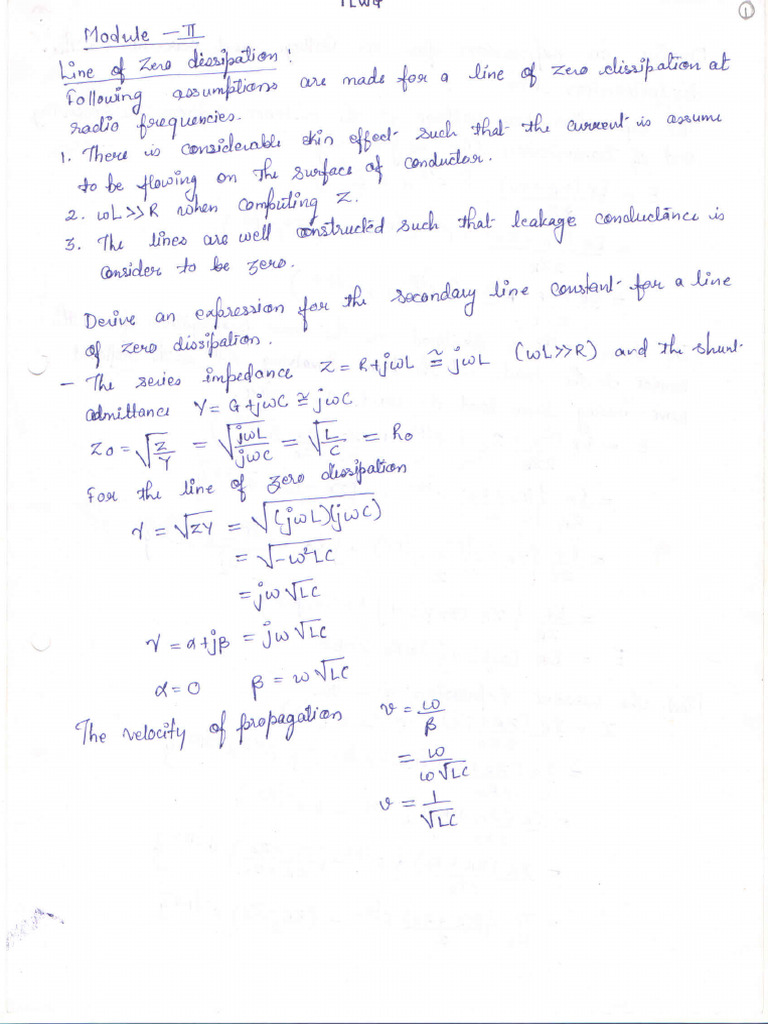 TLWG
1
Module - II
Line of Zero dissipation:
Following assumptions are made for a line of zero dissipation at
radio frequencies.
1. There is considerable skin effect such that the current is assume
to be flowing on the surface of conductor.
2. ωL>>R when computing Z.
3. The lines are well constructed such that leakage conductance is
consider to be zero.
Derive an expression for the secondary line constant for a line
of zero dissipation.
- The series impedance Z = R+jωL ≅ jωL (ωL>>R) and the shunt
admittance Y = G+jωC ≅ jωC
Z0 = √(Z/Y) = √(jωL/jωC) = √(L/C) = R0
For the line of zero dissipation
γ = √ZY = √(jωL)(jωC)
= √-ω²LC
= jω√LC
γ = α+jβ = jω√LC
α = 0 β = ω√LC
The velocity of propagation v = ω/β
= ω/ω√LC
v = 1/√LC